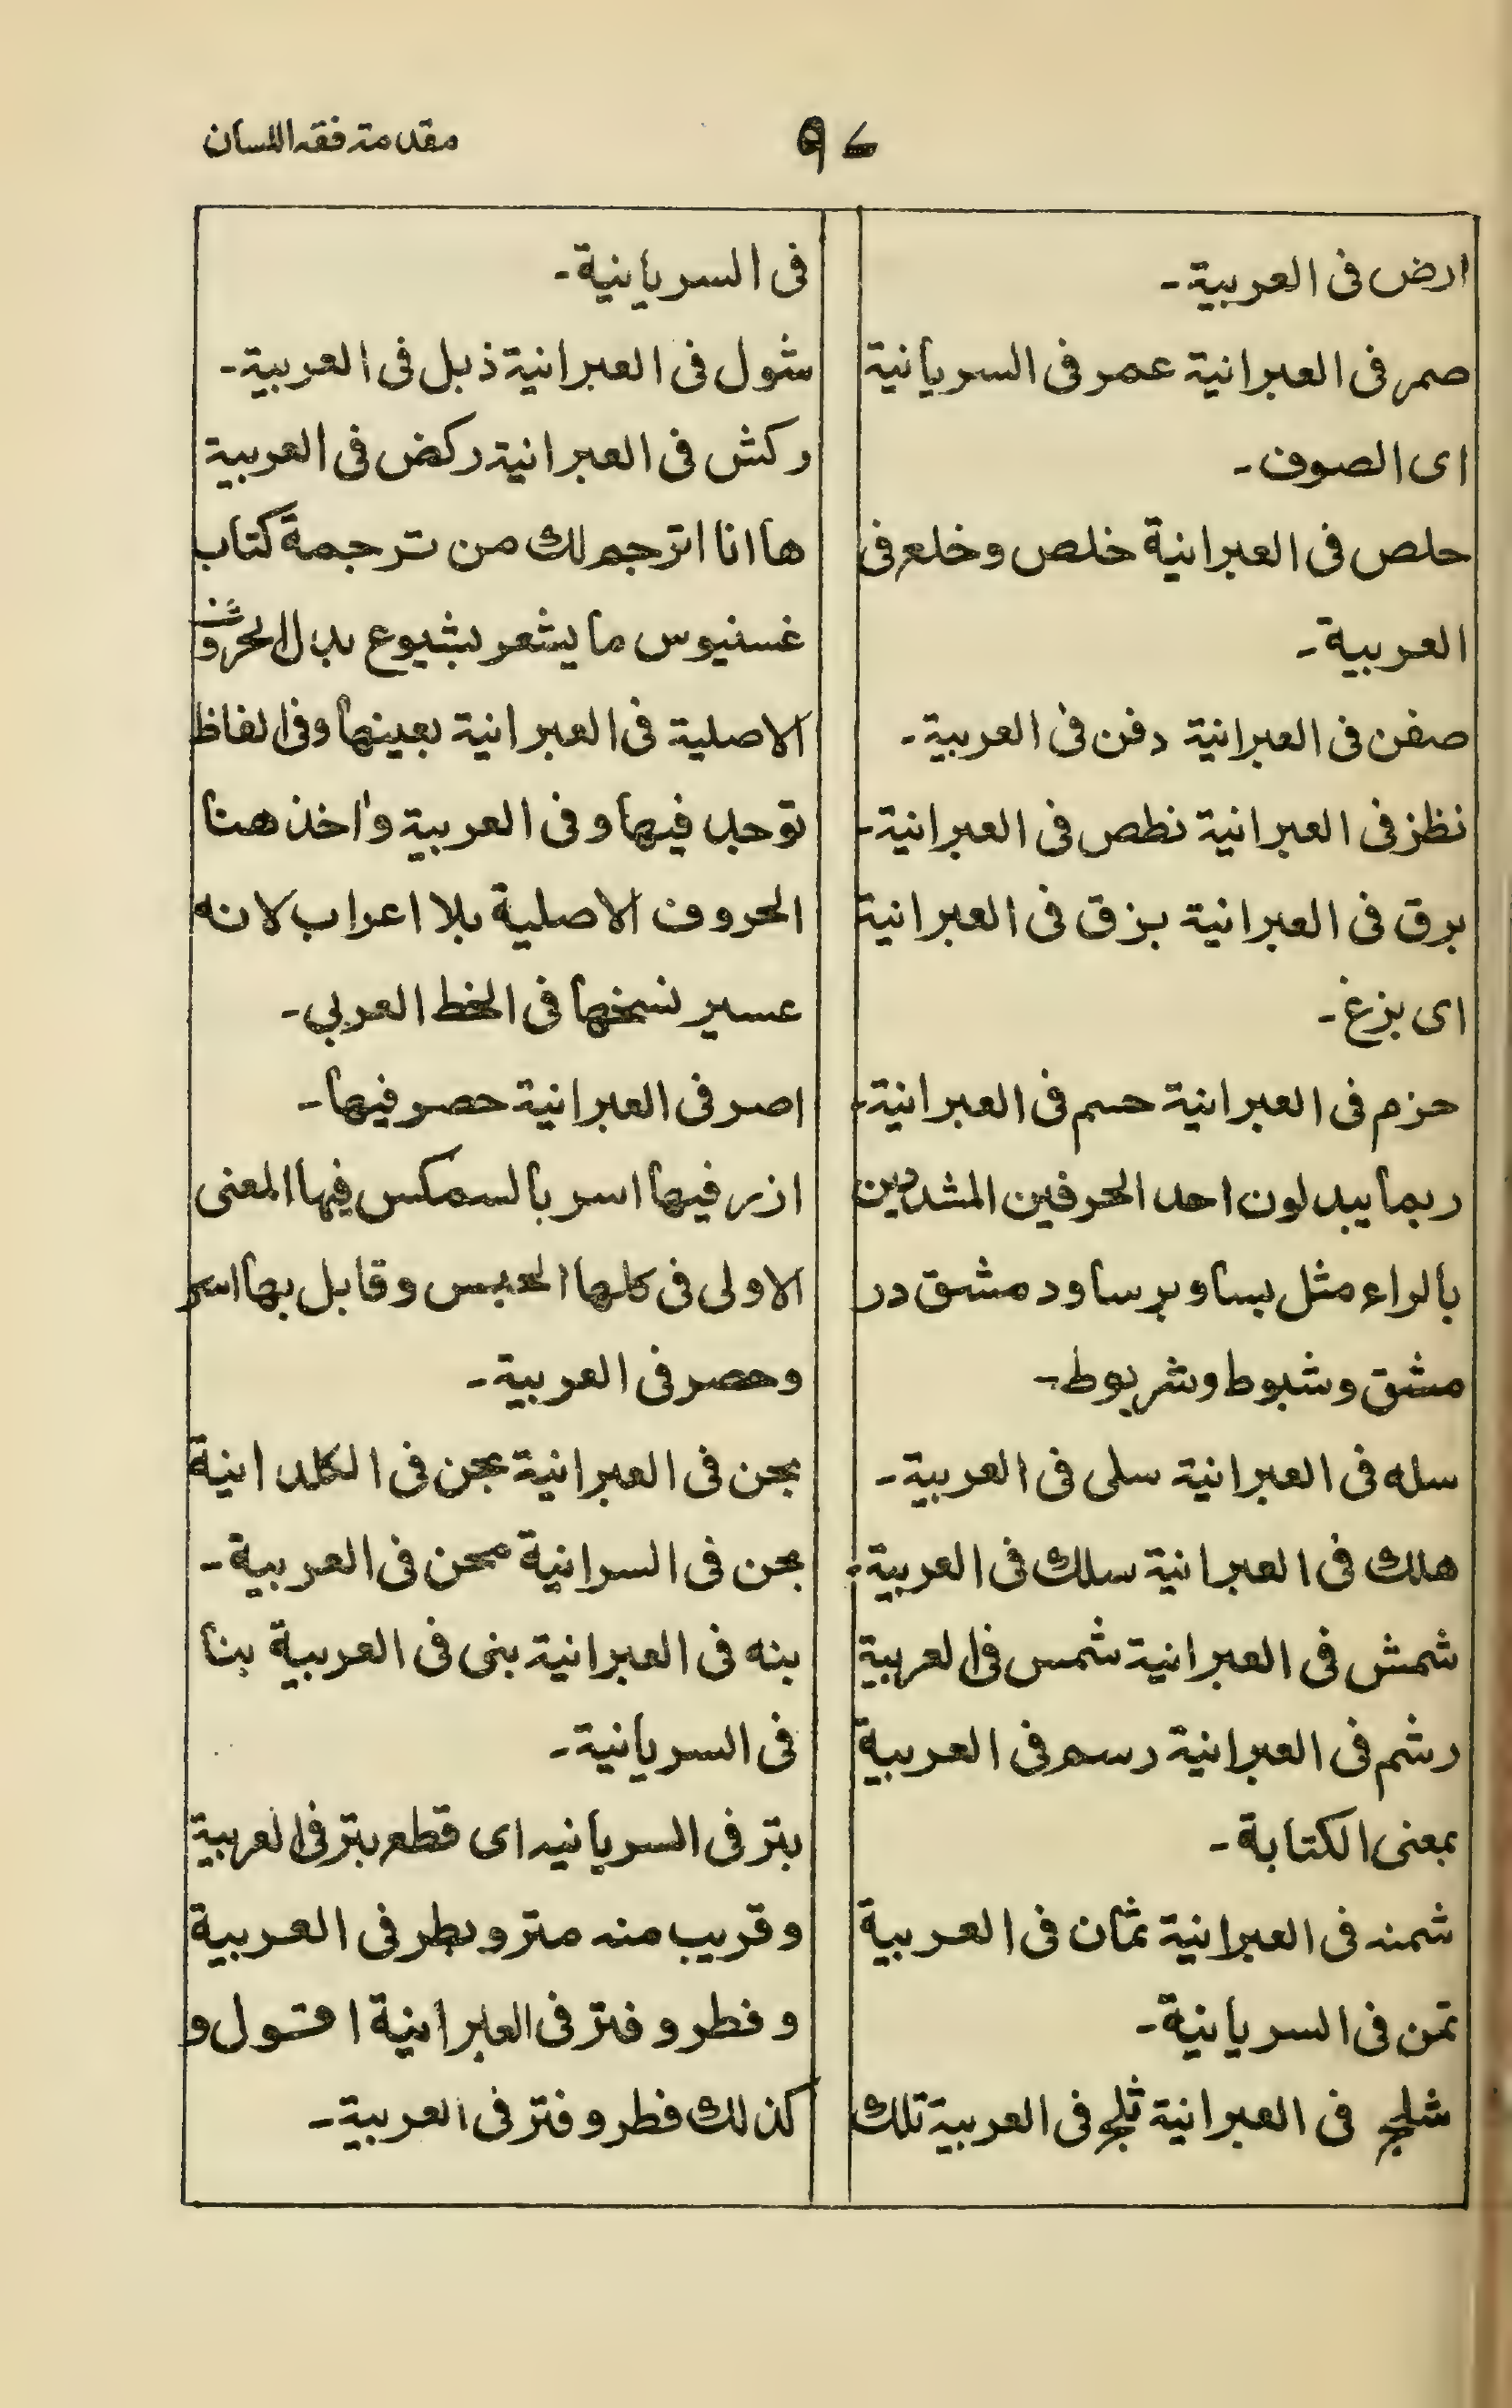 مقدمة فقه اللسان
ارض فى العربية۔
صمر فى العبرانية عمر فى السريانية
اى الصوف۔
حلص فى العبرانية خلص وخلع فى
العربية۔
صفن فى العبرانية دفن فى العربية۔
نظز فى العبرانية نطص فى العبرانية۔
برق فى العبرانية بزق فى العبرانية
اى بزغ۔
حزم فى العبرانية حسم فى العبرانية۔
ربما يبدلون احد الحرفين المشددين
بالراء مثل بساو برساود مشق در
مشق وشبوط وشربوط۔
سله فى العبرانية سلى فى العربية۔
هلك فى العبرانية سلك فى العربية۔
شمش فى العبرانية شمس فى العربية
رشم فى العبرانية رسم فى العربية
بمعنى الكتابة۔
شمنه فى العبرانية ثمان فى العربية
تمن فى السريانية۔
شلج فى العبرانية ثلج فى العربية تلك
فى السريانية۔
شول فى العبرانية ذبل فى العربية۔
ركش فى العبرانية ركض فى العربية
ها انا اترجم لك من ترجمة كتاب
غسنيوس ما يشعر بشيوع بدال الحروف
الاصلية فى العبرانية بعينها وفى الفاظ
توجد فيها وفى العربية واخذ هنا
الحروف الاصلية بلا اعراب لانه
عسير نسخها فى الخط العربي۔
اصر فى العبرانية حصر فيها۔
ازر فيها اسر بالسمكس فيها المعنى
الاولى فى كلها الحبس وقابل بها اسر
وحصر فى العربية۔
بحن فى العبرانية بحن فى الكلدانية
بحن فى السرانية محن فى العربية۔
بنه فى العبرانية بنى فى العربية بنا
فى السريانية۔
بتر فى السريانيه اى قطع بتر فى العربية
وقريب منه متر وبطر فى العربية
وفطر وفتر فى العبرانية اقول و
كذلك فطر وفتر فى العربية۔